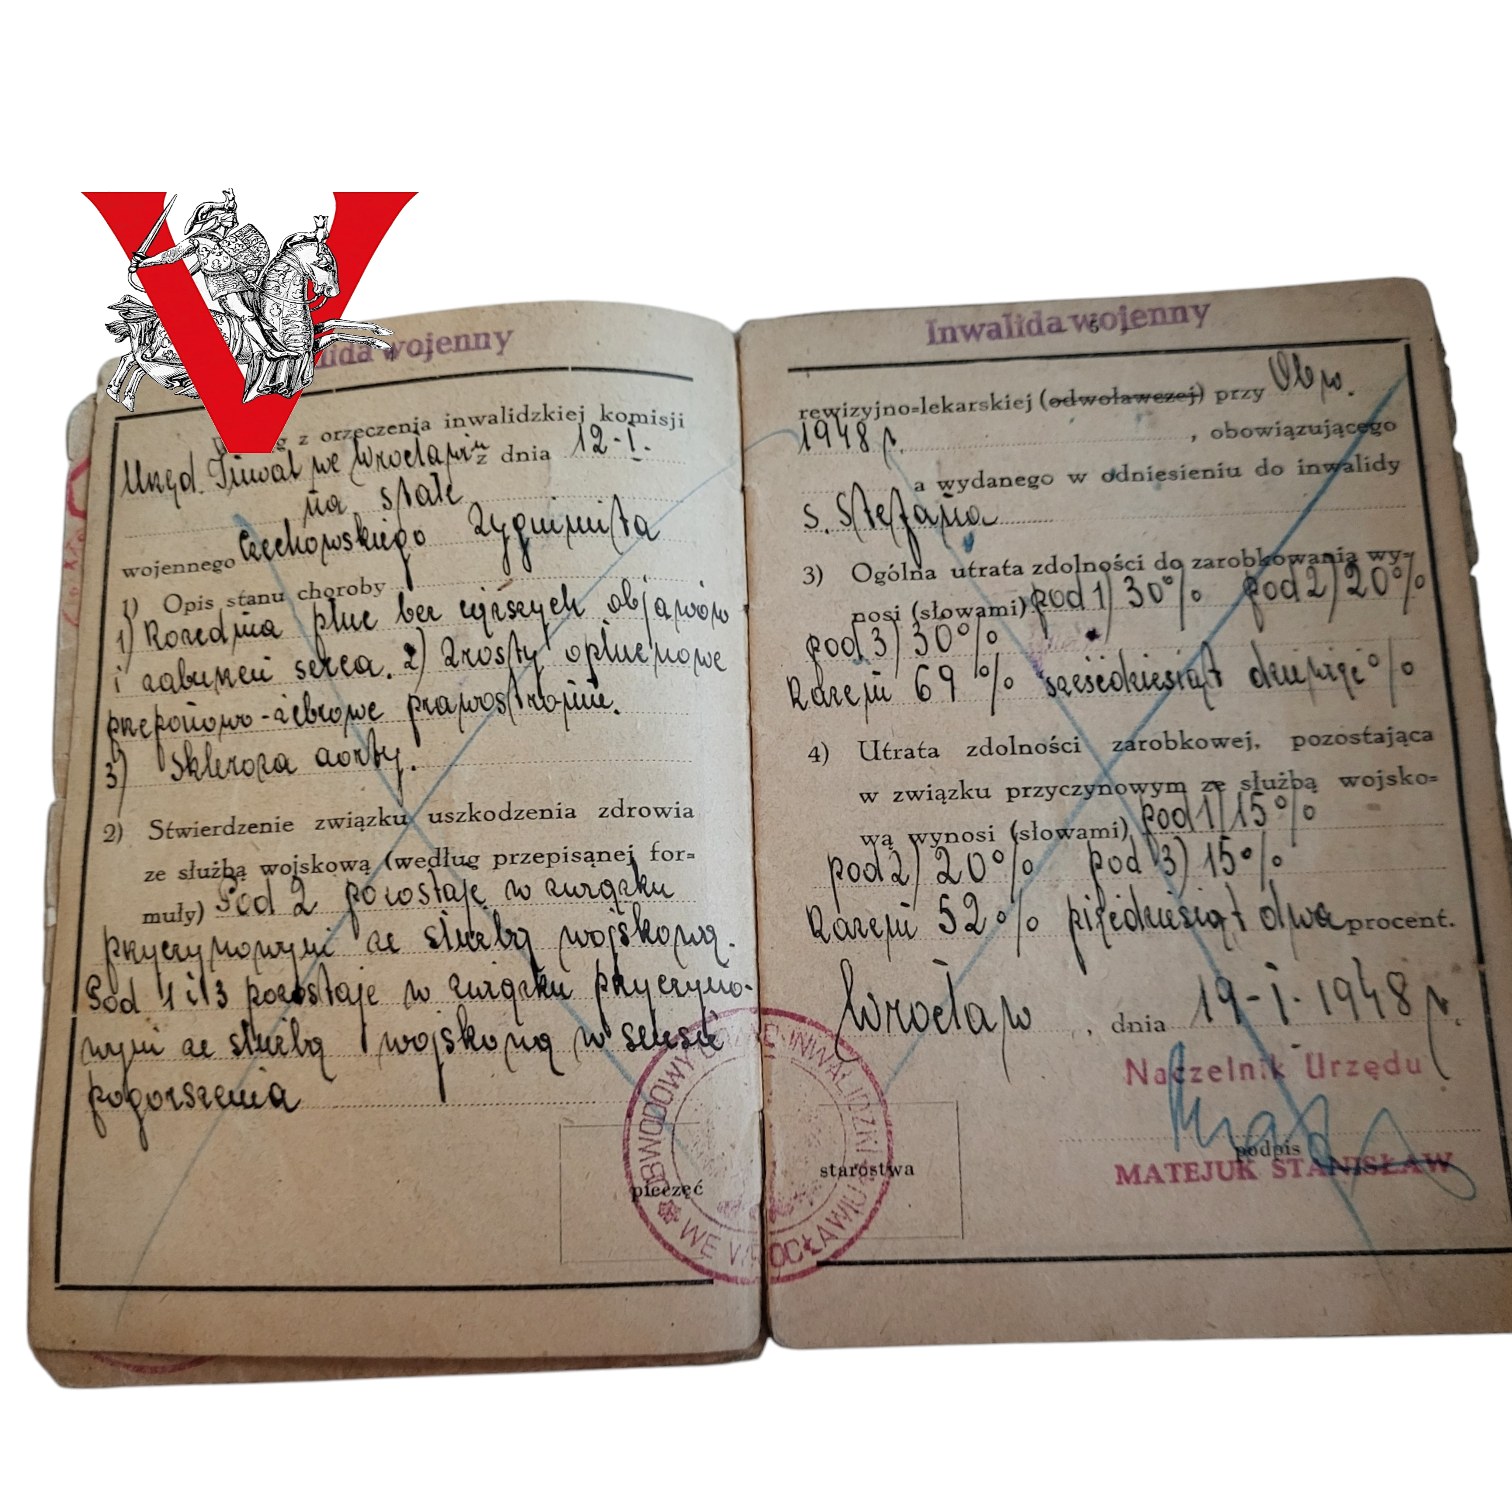 lida wojenny
g z orzeczenia inwalidzkiej komisji
Urzęd. Inwal we Wrocławiu z dnia 12-I.
na stałe
wojennego Czechowskiego Zygmunta
1) Opis stanu choroby
1) Rozedma płuc bez cięższych objawów
i zaburzeń serca. 2) Zrosty opłucnowe
przeponowo-żebrowe prawostronne.
3) Skleroza aorty.
2) Stwierdzenie związku uszkodzenia zdrowia
ze służbą wojskową (według przepisanej for=
muły) Pod 2 pozostaje w związku
przyczynowym ze służbą wojskową.
Pod 1 i 3 pozostaje w związku przyczyno-
wym ze służbą wojskową w sensie
pogorszenia
pieczęć
Inwalida wojenny
6
rewizyjno=lekarskiej (odwoławczej) przy Obw.
1948 r. , obowiązującego
a wydanego w odniesieniu do inwalidy
s. Stefana
3) Ogólna utrata zdolności do zarobkowania wy=
nosi (słowami) pod 1) 30% pod 2) 20%
pod 3) 30%
Razem 69 % sześćdziesiąt dziewięć %
4) Utrata zdolności zarobkowej, pozostająca
w związku przyczynowym ze służbą wojsko=
wą wynosi (słowami) pod 1) 15%
pod 2) 20% pod 3) 15%
Razem 52 % pięćdziesiąt dwa procent.
Wrocław , dnia 19-I-1948 r.
Naczelnik Urzędu
podpis
MATEJUK STANISŁAW
starostwa
OBWODOWY URZĄD INWALIDZKI
WE WROCŁAWIU